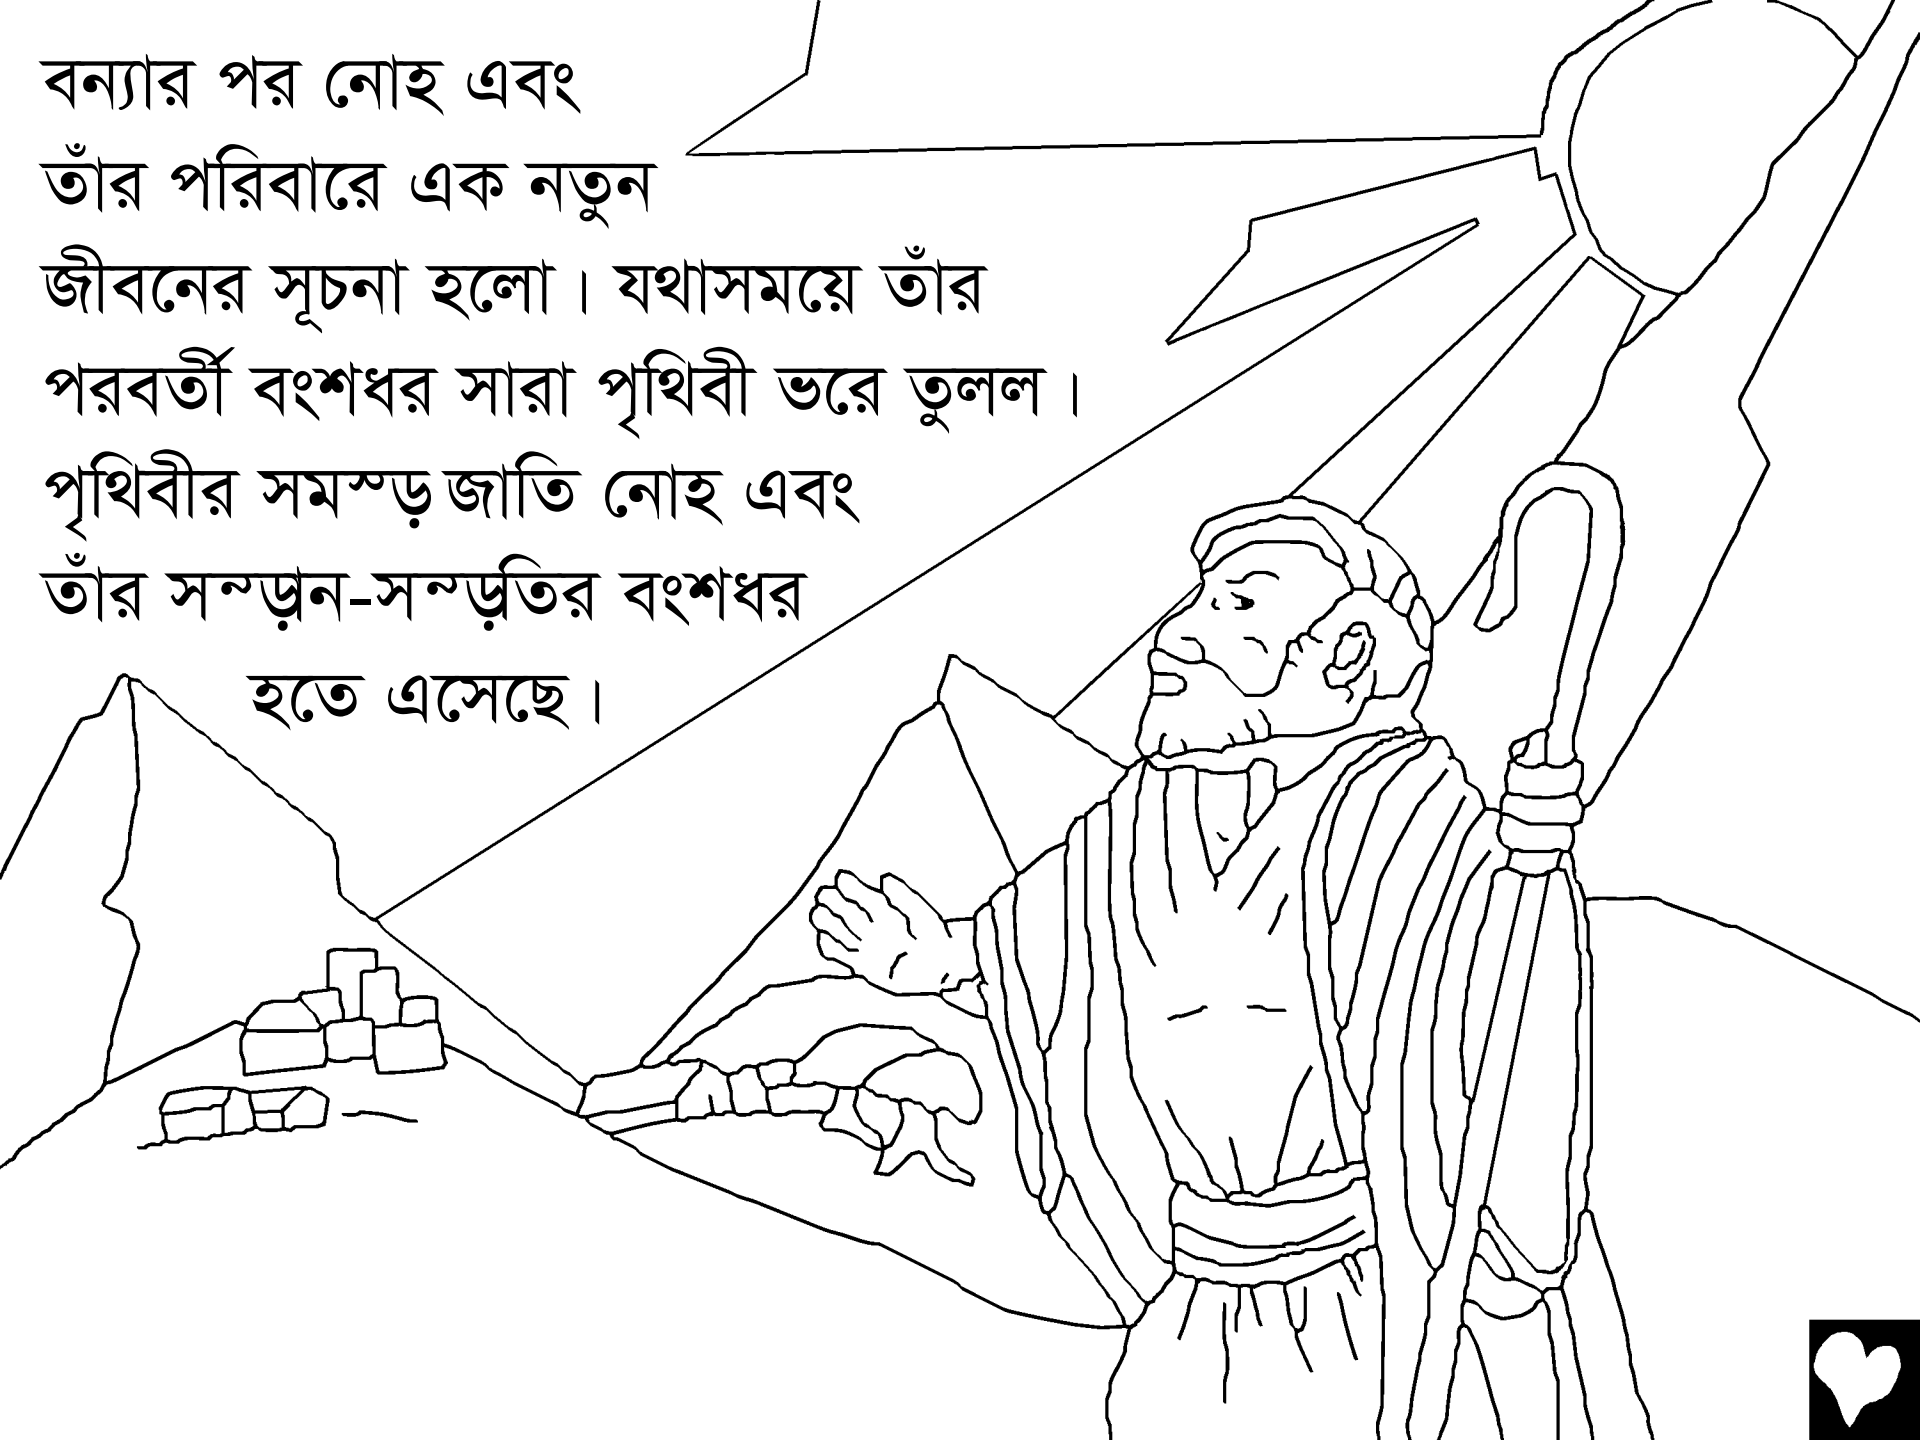 বন্যার পর নোহ এবং
তাঁর পরিবারে এক নতুন
জীবনের সূচনা হলো। যথাসময়ে তাঁর
পরবর্তী বংশধর সারা পৃথিবী ভরে তুলল।
পৃথিবীর সমস্ড় জাতি নোহ এবং
তাঁর সন্ড়ান-সন্ড়তির বংশধর
হতে এসেছে।